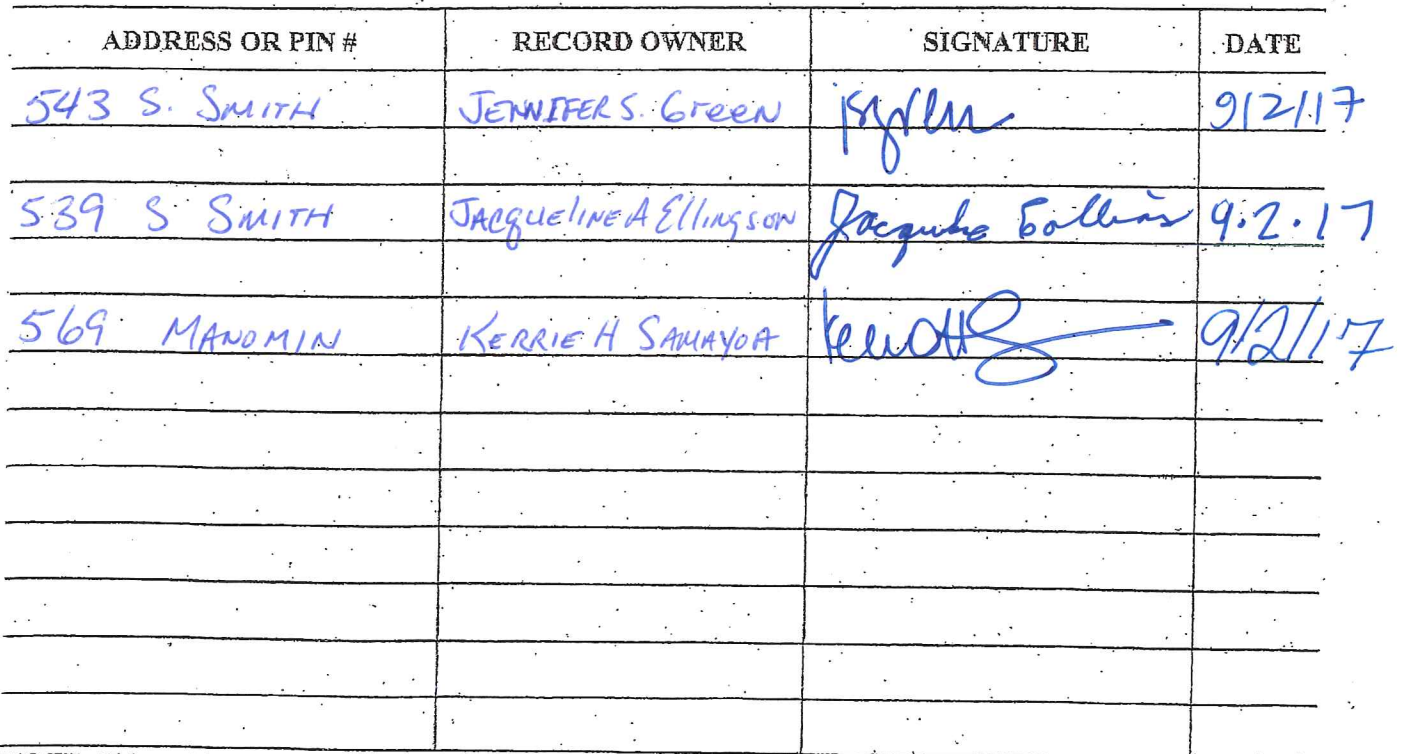 ADDRESS OR PIN # RECORD OWNER SIGNATURE DATE
543 S. SMITH JENNIFER S. Green 9/2/17
539 S SMITH JACQUELINE A Ellingson Jacqueline 9.2.17
569 MANOMIN KERRIE H SAMAYOA 9/2/17